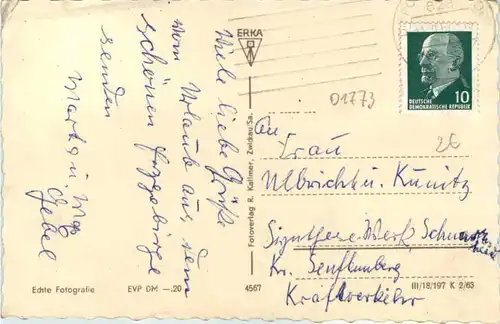 Viele liebe Grüße
vom Urlaub aus, dem
schönen Erzgebirge
senden
Martha u.
Gebel
ERKA
DEUTSCHE
DEMOKRATISCHE REPUBLIK
10
D1773
2E
Fotoverlag R. Kallmer, Zwickau/Sa.
An
Frau
Ulbricht u. Kunitz
Synthese-Werk
Kr. Senftenberg
Kraftverkehr
Echte Fotografie
EVP DM —.20
4567
III/18/197 K 2/63